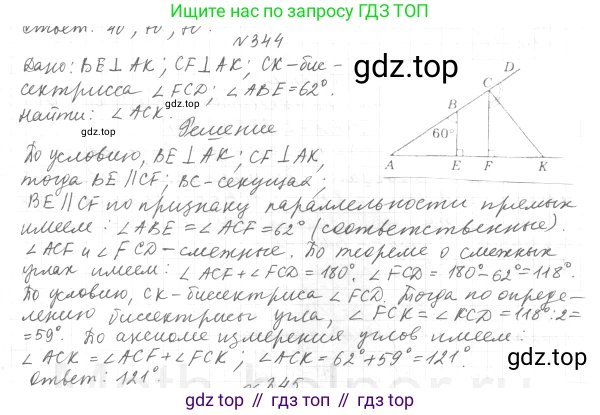 Ищите нас по запросу ГДЗ ТОП
Ответ: 40°, 70°, 70°.
№344
Дано: BE⊥AK; CF⊥AK; CK-бис-
сектрисса ∠FCD; ∠ABE=62°.
Найти: ∠ACK.
Решение
По условию, BE⊥AK; CF⊥AK,
тогда BE∥CF; BC-секущая;
BE∥CF по признаку параллельности прямых
имеем: ∠ABE=∠ACF=62° (соответственные).
∠ACF и ∠FCD-смежные. По теореме о смежных
углах имеем: ∠ACF+∠FCD=180°. ∠FCD=180°-62°=118°.
По условию, CK-биссектриса ∠FCD. Тогда по опреде-
лению биссектрисы угла, ∠FCK=∠KCD=118°:2=
=59°. По аксиоме измерения углов имеем:
∠ACK=∠ACF+∠FCK; ∠ACK=62°+59°=121°.
Ответ: 121°.
№345
гдз.top
D
C
B
60°
A
E
F
K
гдз.top
гдз.top
umnaya // дверь // отвечает